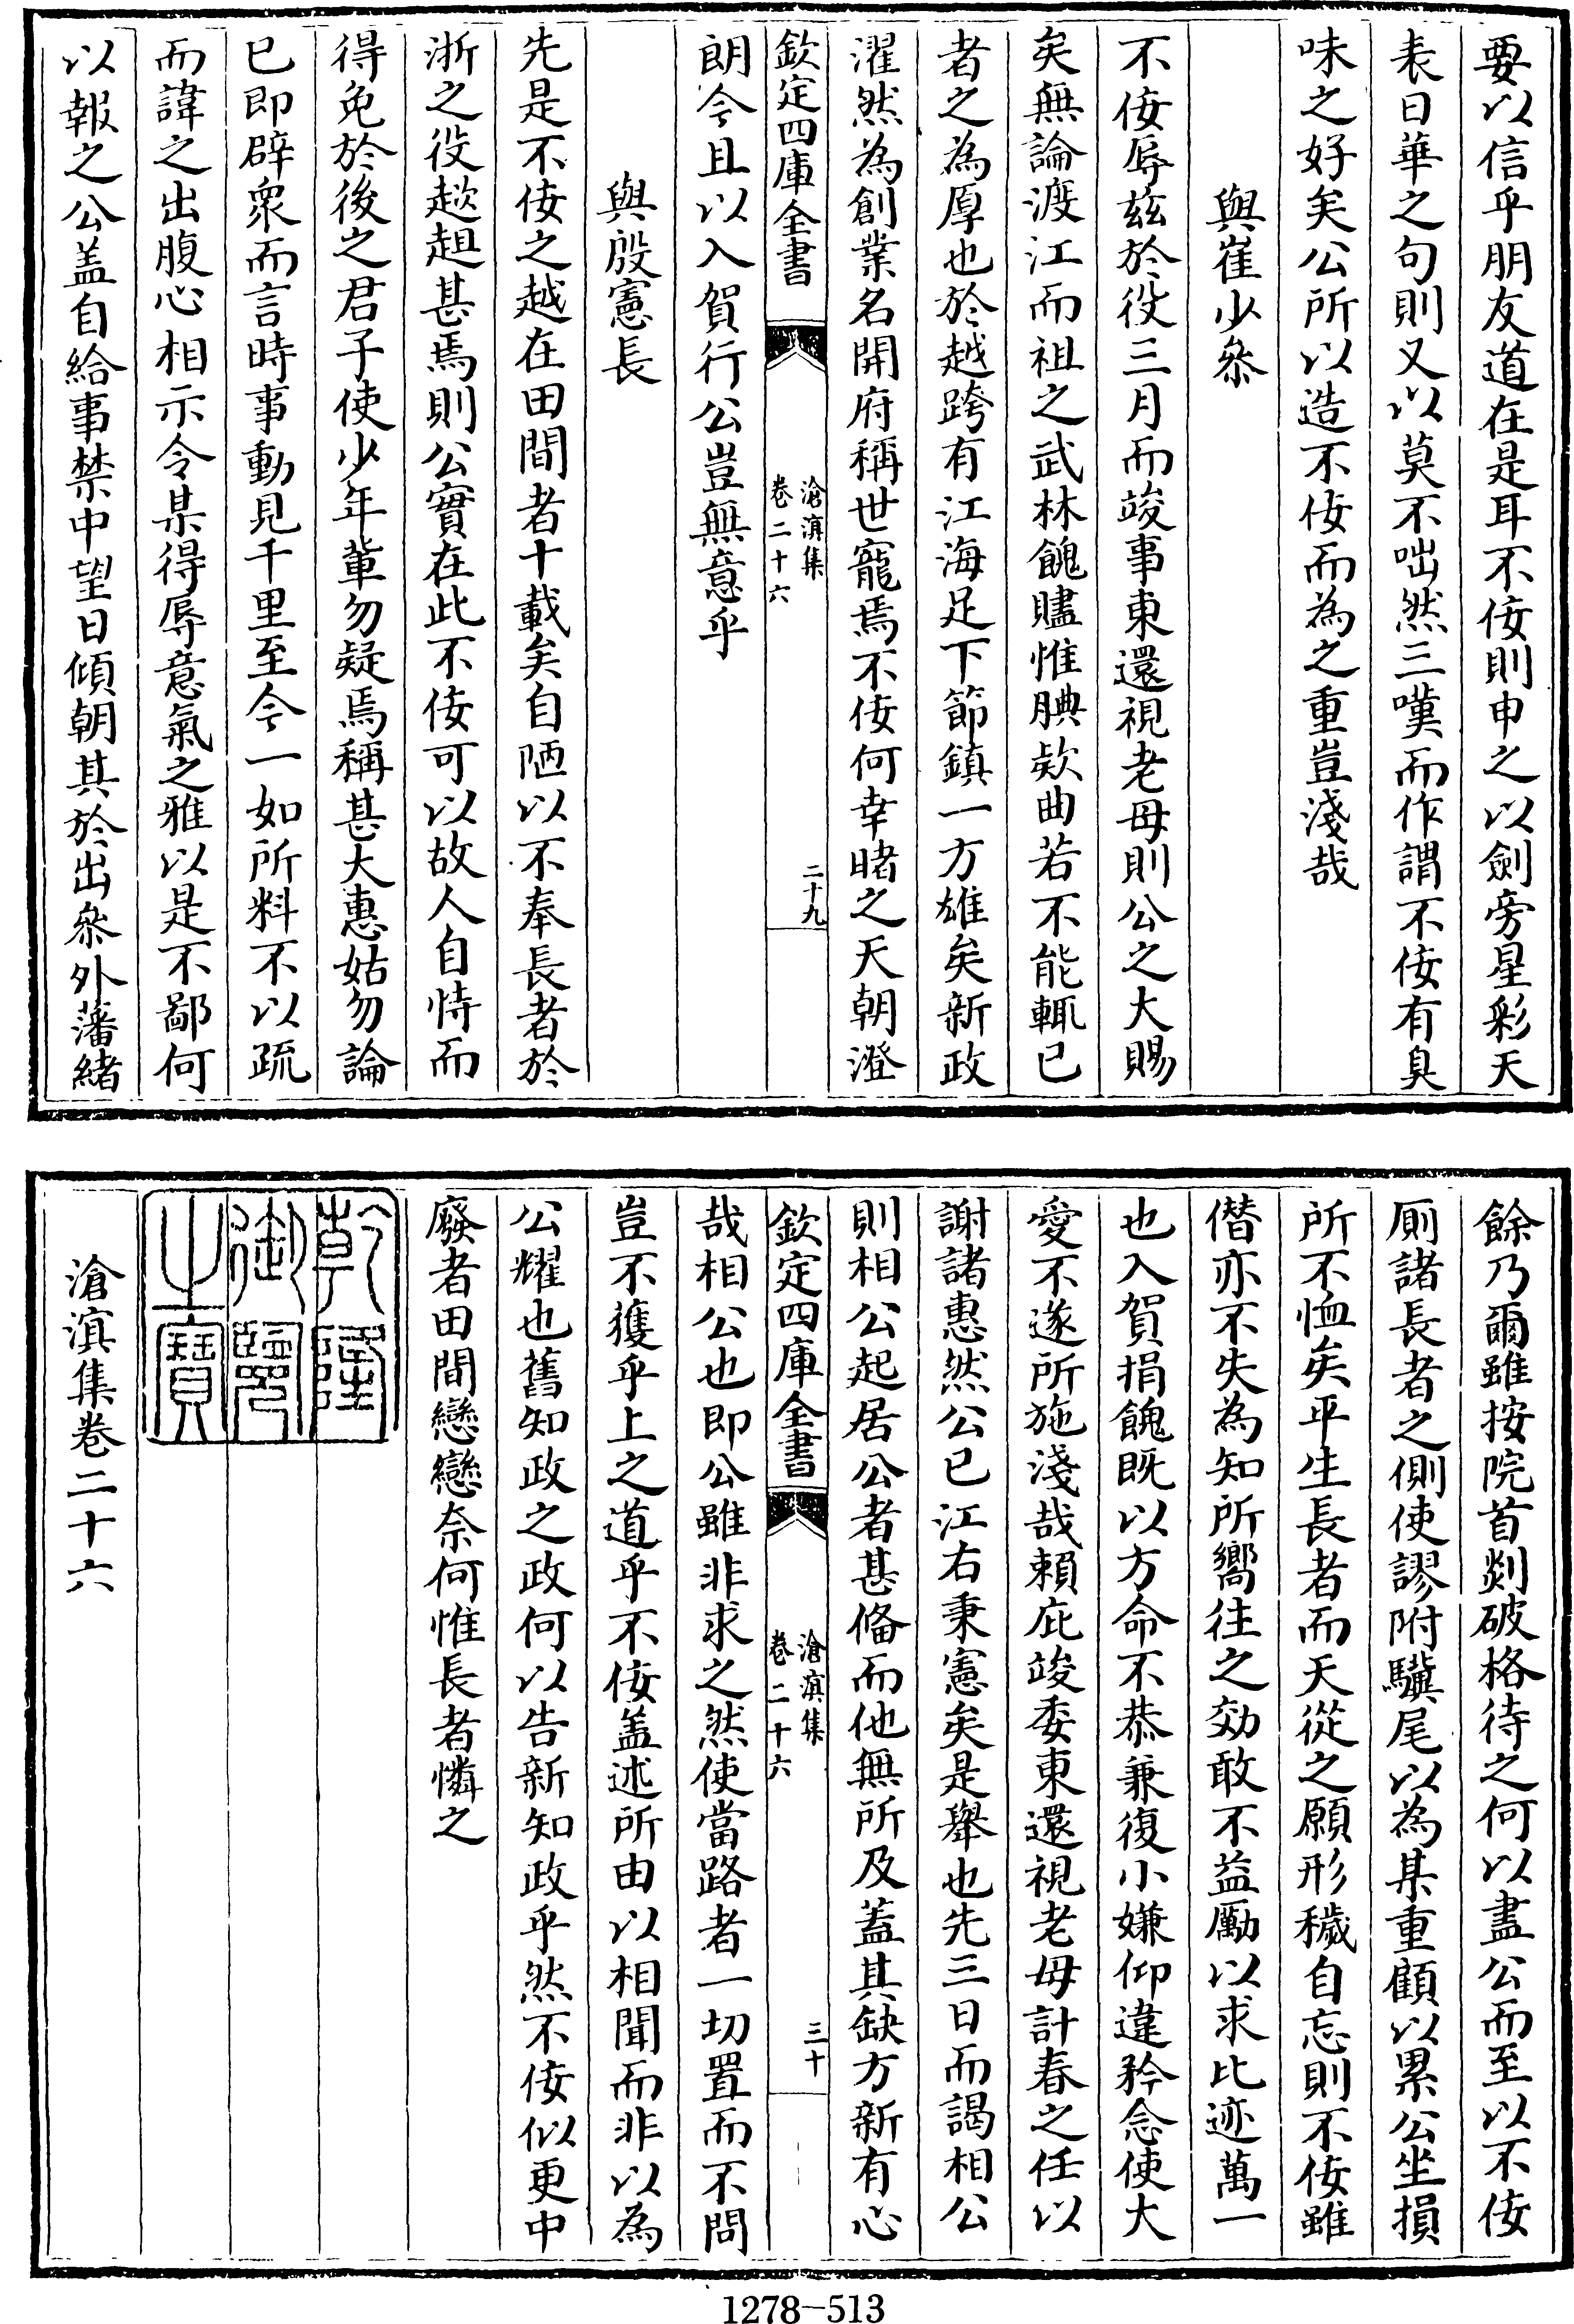 要以信乎朋友道在是耳不佞則申之以劍旁星彩天
表日華之句則又以莫不咄然三嘆而作謂不佞有臭
味之好矣公所以造不佞而為之重豈淺哉
與崔少叅
不佞辱兹於役三月而竣事東還視老母則公之大賜
矣無論渡江而祖之武林餽贐惟腆欵曲若不能輒已
者之為厚也於越跨有江海足下節鎮一方雄矣新政
濯然為創業名開府稱世寵焉不佞何幸睹之天朝澄
欽定四庫全書
滄溟集
卷二十六
二十九
朗今且以入賀行公豈無意乎
與殷憲長
先是不佞之越在田間者十載矣自陋以不奉長者於
浙之役趑趄甚焉則公實在此不佞可以故人自恃而
得免於後之君子使少年輩勿疑焉稱甚大惠姑勿論
已即辟衆而言時事動見千里至今一如所料不以疏
而諱之出腹心相示令某得辱意氣之雅以是不鄙何
以報之公盖自給事禁中望日傾朝其於出叅外藩緒
餘乃爾雖按院首剡破格待之何以盡公而至以不佞
厠諸長者之側使謬附驥尾以為某重顧以累公坐損
所不恤矣平生長者而天從之願形穢自忘則不佞雖
僭亦不失為知所嚮往之効敢不益勵以求比迹萬一
也入賀捐餽既以方命不恭兼復小嫌仰違矜念使大
愛不遂所施淺哉賴庇竣委東還視老母計春之任以
謝諸惠然公已江右秉憲矣是舉也先三日而謁相公
則相公起居公者甚偹而他無所及蓋其缺方新有心
欽定四庫全書
滄溟集
卷二十六
三十
哉相公也即公雖非求之然使當路者一切置而不問
豈不獲乎上之道乎不佞盖述所由以相聞而非以為
公耀也舊知政之政何以告新知政乎然不佞似更中
廢者田間戀戀奈何惟長者憐之
乾隆
御覽
之寶
滄溟集卷二十六
1278-513